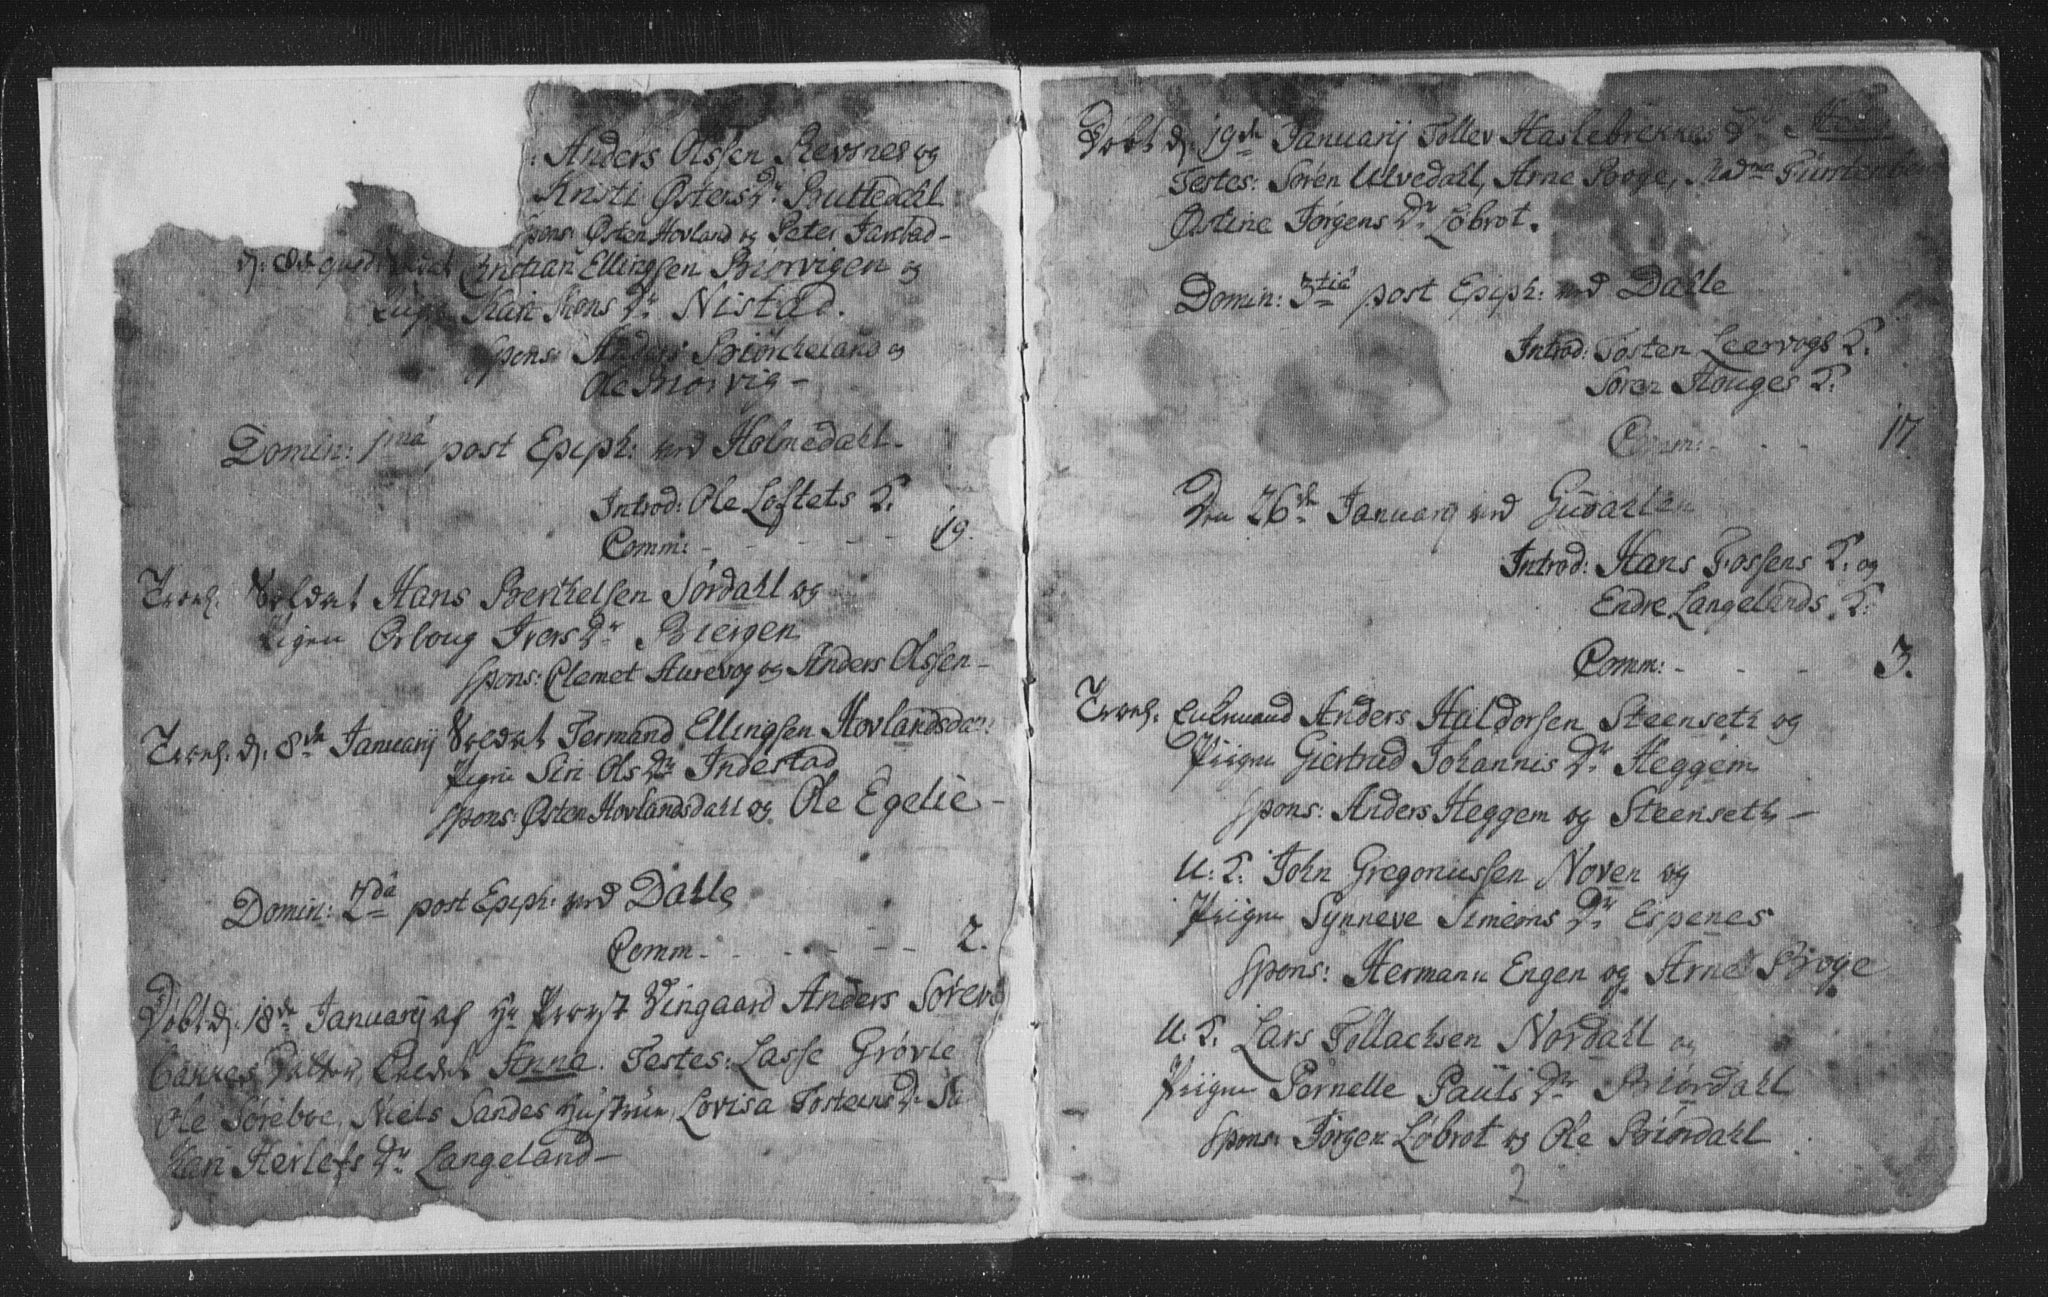 : Anders Olssen Revsnes og
Kristi Østens Dr Buttedahl
Spons: Østen Hovland og Peter Jarstad -
Christian Ellingsen Morvigen og
Kari Mons Dr Nistad.
Spons: Anders Biørcheland og
Ole Morvig -
Domin: 1má post Epiph: ved Holmedahl -
Introd: Ole Loftets K.
Comm: - - - - - 19.
Trol. Soldat Hans Berthelsen Sørdahl og
Pigen Orboug Ivers Dr Biergen
Spons: Clemet Aurevog og Anders Olssen -
Trol. d. 8de Januarij Soldat Jermand Ellingsen Hovlandsdahl
Pigen Siri Ols Dr Indestad
Spons: Østen Hovlandsdahl og Ole Egelie -
Domin: 2dá post Epiph: ved Dahle
Comm. - - - - - 2.
Døbt d. 18de Januarij af Hr Provst Vingaard Anders Søren
Datter, Kaldet Anne. Testes: Lasse Grøvle
Ole Søreboe, Niels Sandes Hustrue, Lovisa Tostens Dr
Kari Herlefs Dr Langeland -
Døbt d. 19de Januarij Tollev Haslebrekkes Dr
Testes: Søren Ulvedahl, Arne Boge, Madme Fürstenberg
Østine Jørgens Dr Løbrot.
Domin: 3tiá post Epiph: ved Dahle
Introd: Tosten Leervogs K.
Søren Houges K.
Comm: - - - 17.
Den 26de Januarij ved Guddahlen
Introd: Hans Fossens K. og
Endre Langelands K.
Comm: - - - 3.
Trol. Enkemand Anders Haldorsen Steenseth og
Piigen Giertrud Johannis Dr Heggem
Spons: Anders Heggem og Steenseth -
U. K. John Gregoriussen Noven og
Piigen Synneve Simeons Dr Espenes
Spons: Hermann Engen og Arne Boge
U. K. Lars Tollachsen Nordahl og
Piigen Pornelle Pauls Dr Biørdahl
Spons: Jørgen Løbrot og Ole Biørdahl
2